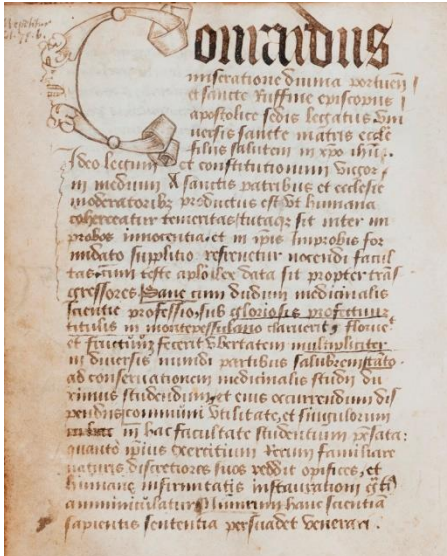 Conrardus
miseratione diuina portueñ
et sancte Ruffine episcopus
apostolice sedis legatus Uni
uersis sancte matris eccle
filijs salutem in xpo ihũ.
Ideo legum et constitutionum vigor
in medium A sanctis patribus et ecclesie
moderatoribꝫ productus est vt humana
coherceatur temeritas tutaqꝫ sit inter im
probos innocentia et in ipis Improbis for
midato supplitio refrenetur nocendi facul
tas, cum teste aplo lex data sit propter trãs
gressores. Sane cum dudum medicinalis
scientie professio, sub gloriosis profectuum
titulis in montepessulano claruerit, floruerit
et fructuum fecerit vbertatem multipliciter
in diuersis mundi partibus salubrem
ad conseruationem medicinalis studii du
ximus studendum, et eius occurrendum dis
pendiis communi vtilitate, et singulorum
in hac facultate studentium pẽsata:
quanto ipius exercitium Rerum familiare
naturis, discretiores suos reddit opifices, et
humane infirmitatis instaurationi
amminiculatur hanc scientiã
sapientis sententia persuadet venerari.